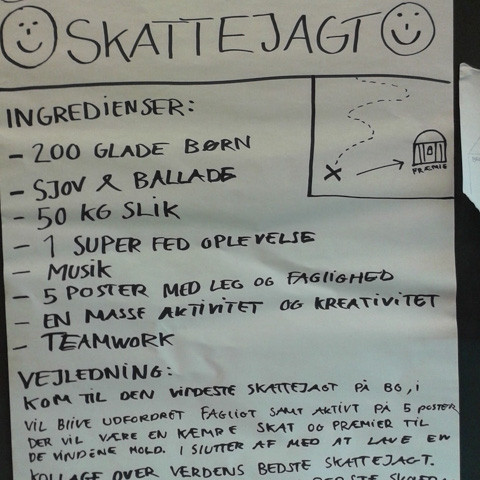 SKATTEJAGT
INGREDIENSER:
- 200 GLADE BØRN
- SJOV & BALLADE
- 50 KG SLIK
- 1 SUPER FED OPLEVELSE
- MUSIK
- 5 POSTER MED LEG OG FAGLIGHED
- EN MASSE AKTIVITET OG KREATIVITET
- TEAMWORK
X
PRÆMIE
VEJLEDNING:
KOM TIL DEN VILDESTE SKATTEJAGT PÅ BG, I
VIL BLIVE UDFORDRET FAGLIGT SAMT AKTIVT PÅ 5 POSTER
DER VIL VÆRE EN KÆMPE SKAT OG PRÆMIER TIL
DE VINDENE HOLD. I SLUTTER AF MED AT LAVE EN
KOLLAGE OVER VERDENS BEDSTE SKATTEJAGT.